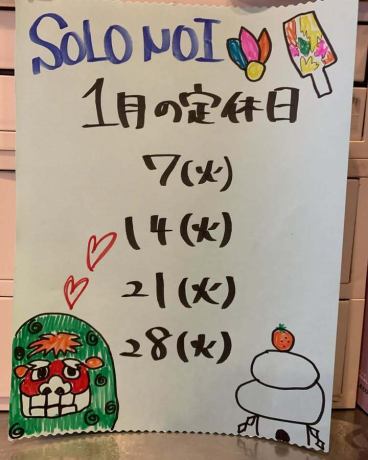 SOLO NOI
1月の定休日
7(火)
14(火)
21(火)
28(火)